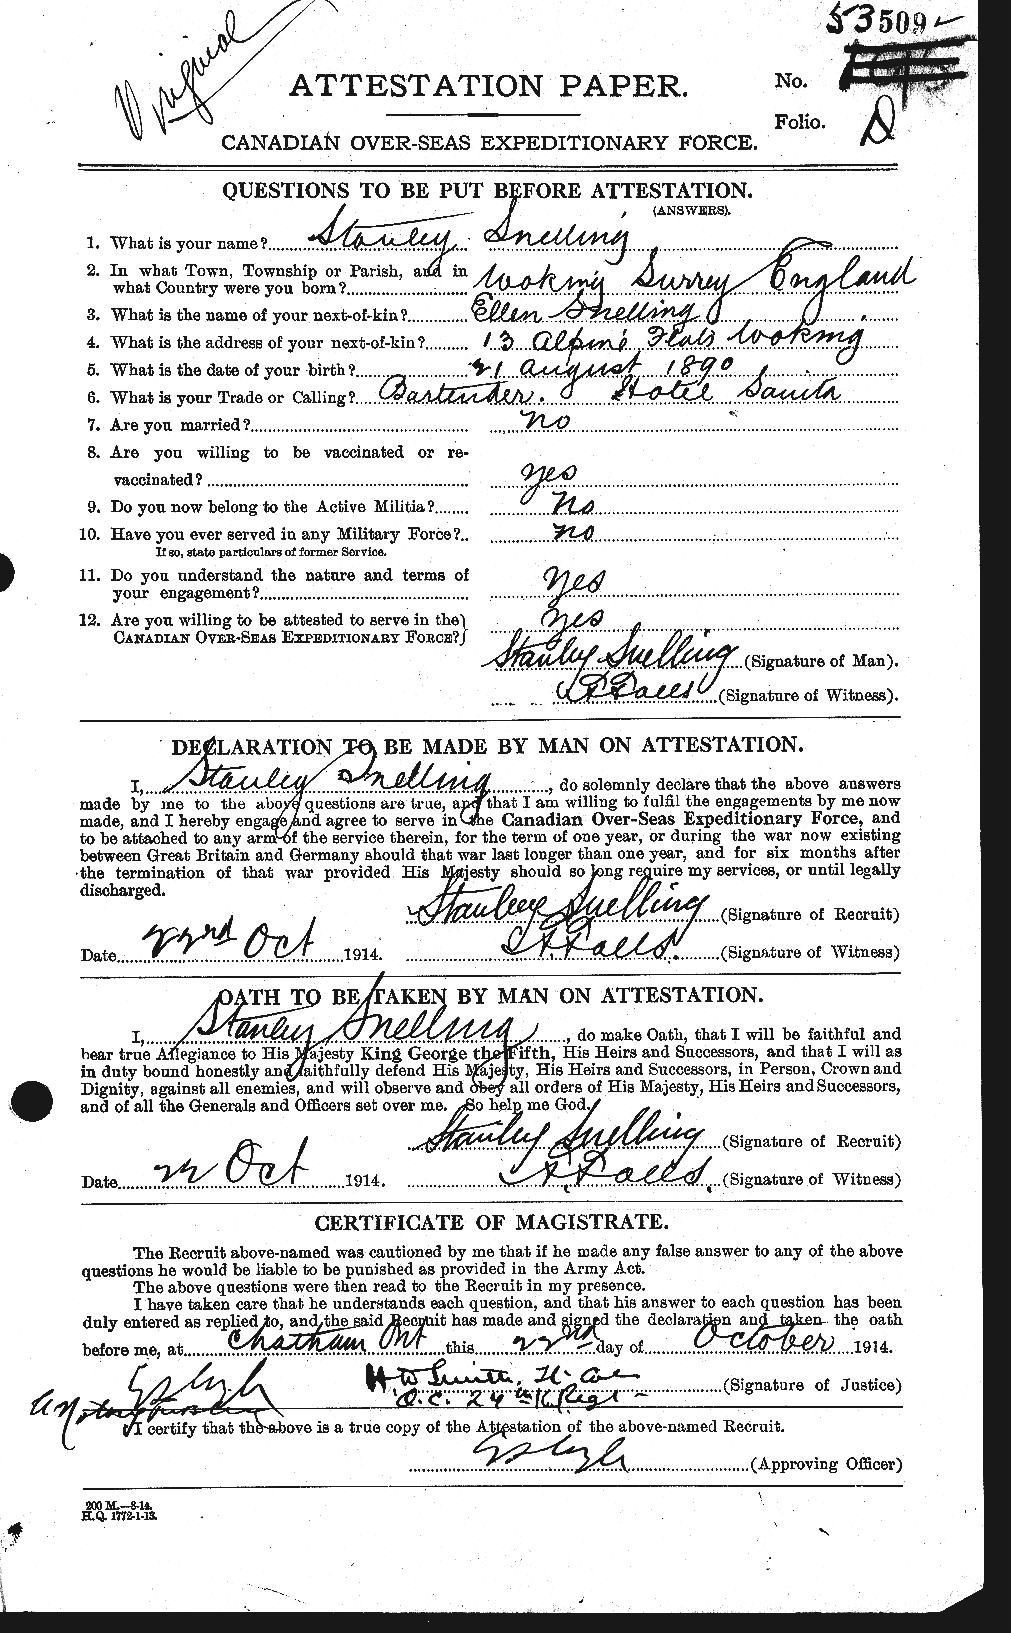 Original
53509
ATTESTATION PAPER.
No.
Folio. D
CANADIAN OVER-SEAS EXPEDITIONARY FORCE.
QUESTIONS TO BE PUT BEFORE ATTESTATION.
(ANSWERS).
1. What is your name? Stanley Snelling
2. In what Town, Township or Parish, and in
what Country were you born? Woking Surrey England
3. What is the name of your next-of-kin? Ellen Snelling
4. What is the address of your next-of-kin? 13 Alpine Flats Woking
5. What is the date of your birth? 21 August 1890
6. What is your Trade or Calling? Bartender. Hotel Sanita
7. Are you married? No
8. Are you willing to be vaccinated or re-
vaccinated? Yes
9. Do you now belong to the Active Militia? No
10. Have you ever served in any Military Force? No
If so, state particulars of former Service.
11. Do you understand the nature and terms of
your engagement? Yes
12. Are you willing to be attested to serve in the
CANADIAN OVER-SEAS EXPEDITIONARY FORCE? Yes
Stanley Snelling (Signature of Man).
(Signature of Witness).
DECLARATION TO BE MADE BY MAN ON ATTESTATION.
I, Stanley Snelling, do solemnly declare that the above answers
made by me to the above questions are true, and that I am willing to fulfil the engagements by me now
made, and I hereby engage and agree to serve in the Canadian Over-Seas Expeditionary Force, and
to be attached to any arm of the service therein, for the term of one year, or during the war now existing
between Great Britain and Germany should that war last longer than one year, and for six months after
the termination of that war provided His Majesty should so long require my services, or until legally
discharged.
Stanley Snelling (Signature of Recruit)
Date 22nd Oct 1914. (Signature of Witness)
OATH TO BE TAKEN BY MAN ON ATTESTATION.
I, Stanley Snelling, do make Oath, that I will be faithful and
bear true Allegiance to His Majesty King George the Fifth, His Heirs and Successors, and that I will as
in duty bound honestly and faithfully defend His Majesty, His Heirs and Successors, in Person, Crown and
Dignity, against all enemies, and will observe and obey all orders of His Majesty, His Heirs and Successors,
and of all the Generals and Officers set over me. So help me God.
Stanley Snelling (Signature of Recruit)
Date 22 Oct 1914. (Signature of Witness)
CERTIFICATE OF MAGISTRATE.
The Recruit above-named was cautioned by me that if he made any false answer to any of the above
questions he would be liable to be punished as provided in the Army Act.
The above questions were then read to the Recruit in my presence.
I have taken care that he understands each question, and that his answer to each question has been
duly entered as replied to, and the said Recruit has made and signed the declaration and taken the oath
before me, at Chatham Ont this 22nd day of October 1914.
H W Smith, Lt. Col (Signature of Justice)
O.C. 24th Regt
I certify that the above is a true copy of the Attestation of the above-named Recruit.
(Approving Officer)
200 M.—8-14.
H.Q. 1772-1-13.